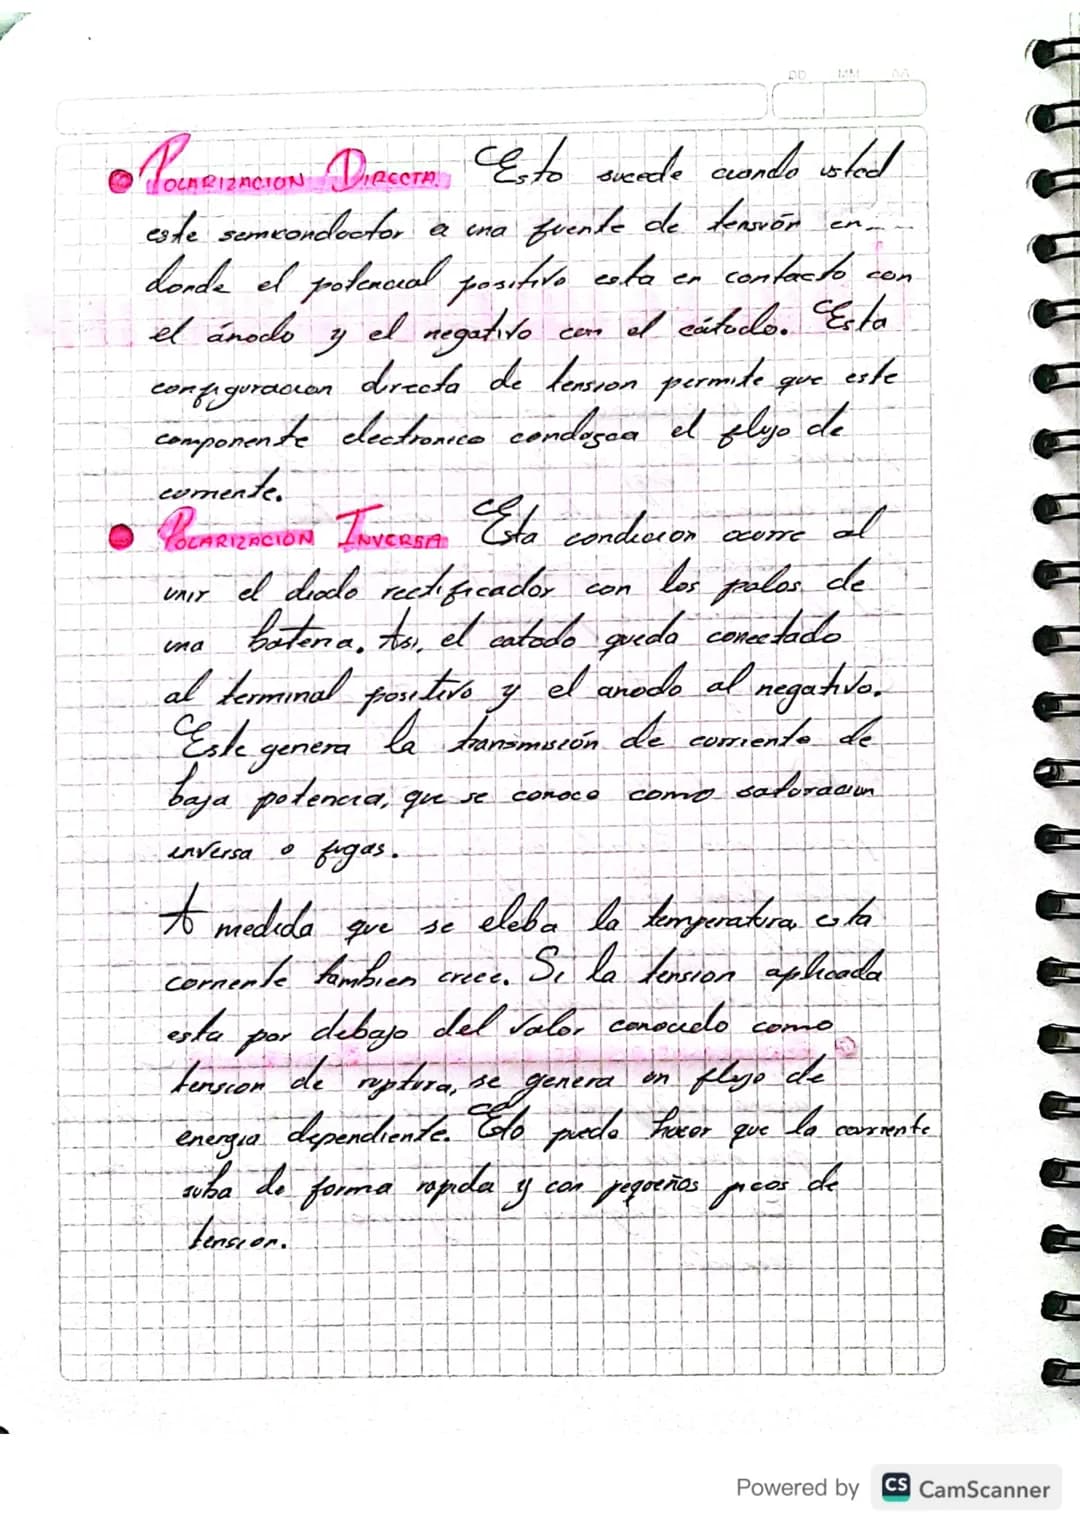 DD MM AA
Polarizacion Directa. Esto sucede cuando usted
este semiconductor a una fuente de tensión en
donde el potencial positivo esta en contacto con
el ánodo y el negativo con el cátodo. Esta
configuracion directa de tension permite que este
componente electronico condusca el flujo de
corriente.
Polarizacion Inversa Esta condicion ocurre al
unir el diodo rectificador con los polos de
una bateria. Asi, el catodo queda conectado
al terminal positivo y el anodo al negativo.
Este genera la transmisión de corriente de
baja potencia, que se conoce como saturacion
inversa o fugas.
A medida que se eleba la temperatura, esta
corriente tambien crece. Si la tension aplicada
esta por debajo del valor conocido como
tension de ruptura, se genera un flujo de
energia dependiente. Esto puede hacer que la corriente
suba de forma rapida y con pequeños picos de
tension.
Powered by CS CamScanner